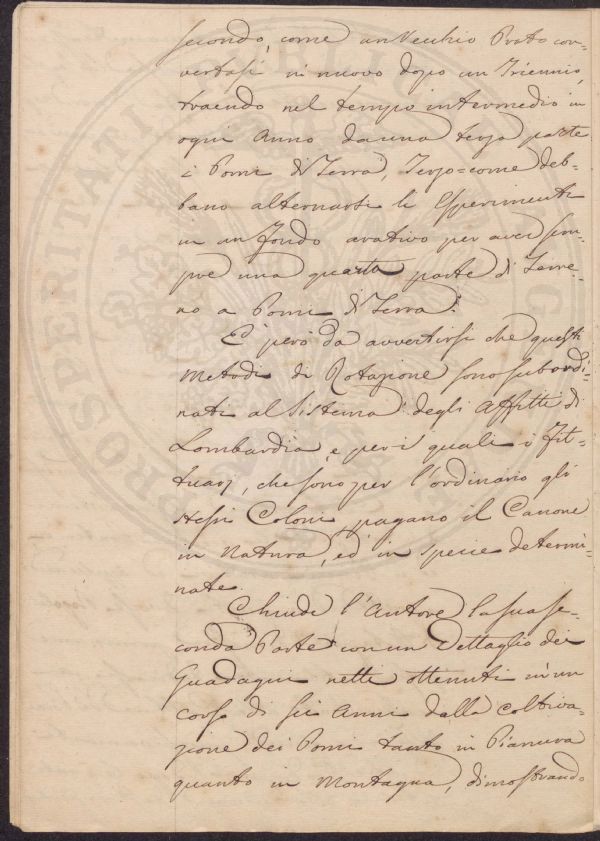 secondo, come un Vecchio Prato con=
vertasi in nuovo dopo un Triennio,
traendo nel tempo intermedio in
ogni Anno da una terza parte
i Pomi di Terra, Terzo=come deb=
bano alternarsi li Esperimenti
in un fondo arativo per aver sem=
pre una quarta parte di Terre=
no a Pomi di Terra.
E però da avvertirsi che questi
Metodi di Rotazione sono subordi=
nati al Sistema degli Affitti di
Lombardia, e per i quali i Fit=
tuarj, che sono per l'ordinario gli
stessi Coloni, pagano il Canone
in Natura, ed in specie determi=
nate.
Chiude l'Autore la sua se=
conda Parte con un Dettaglio dei
Guadagni netti ottenuti in un
corso di sei Anni dalla coltiva=
zione dei Pomi tanto in Pianura
quanto in Montagna, dimostrando